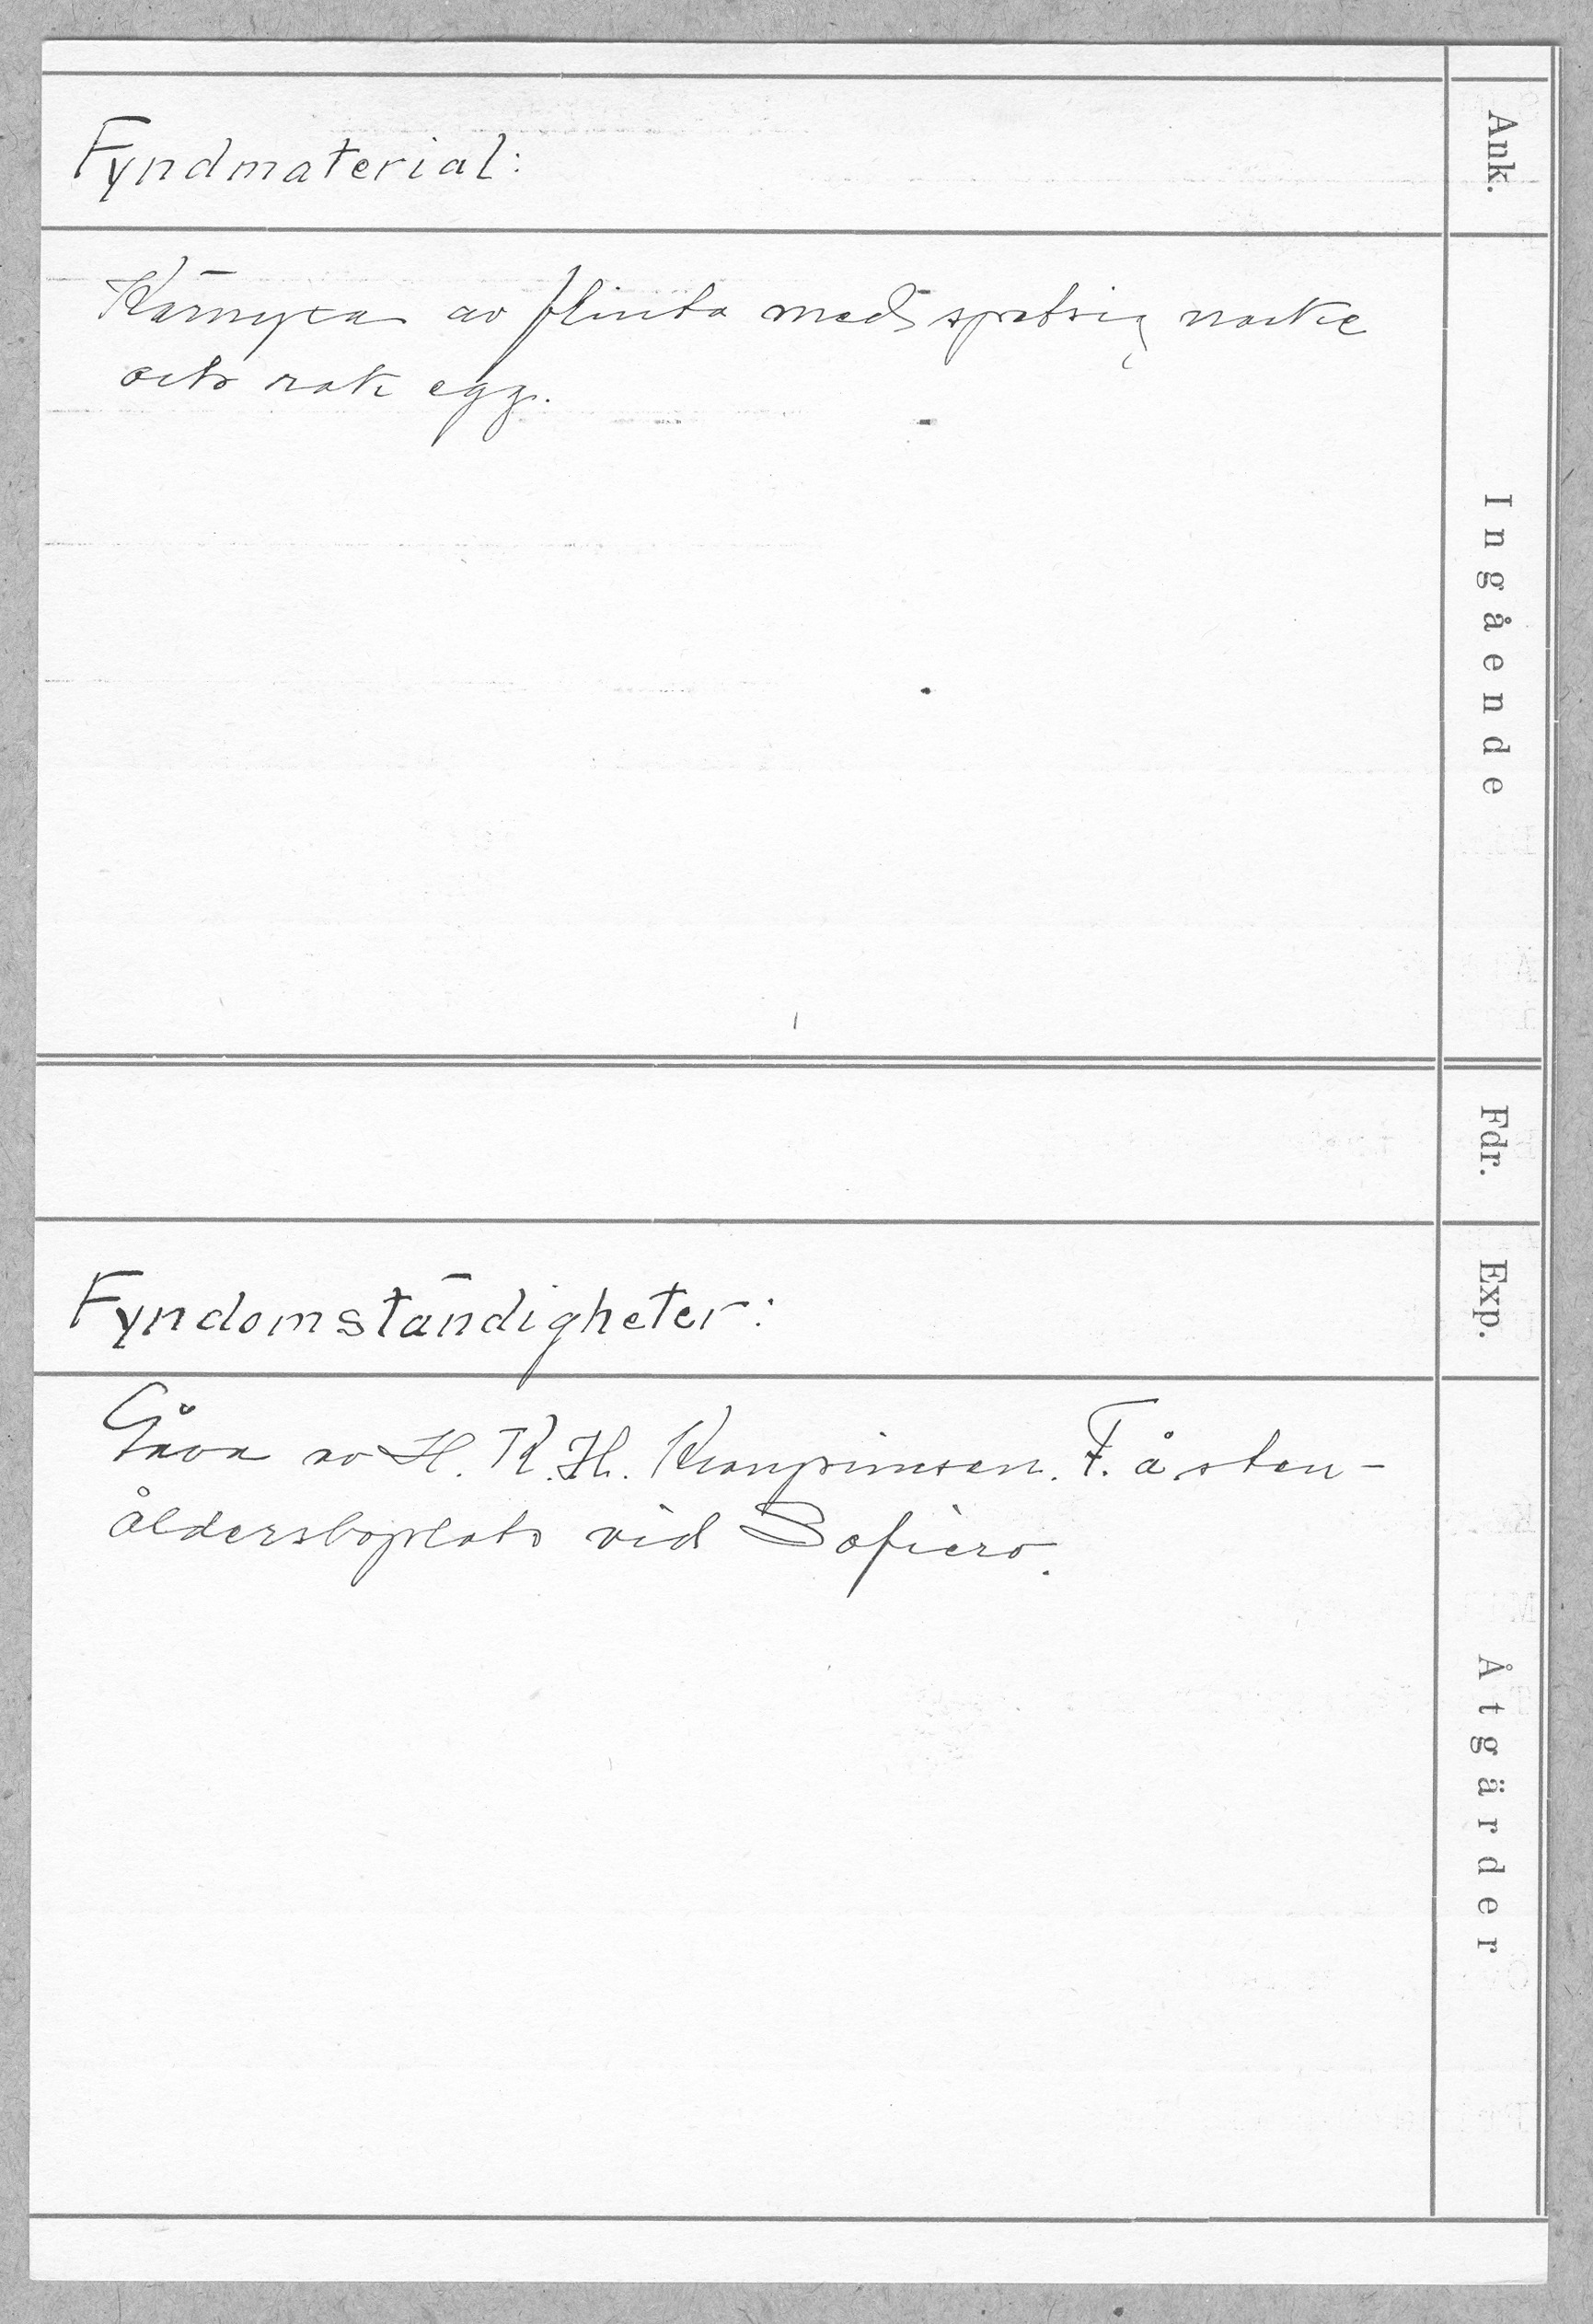 Ank.
Fyndmaterial:
Ingående
Kärnyxa av flinta med spetsig nacke
och rak egg.
Fdr.
Exp.
Fyndomständigheter:
Åtgärder
Gåva av H. K. H. Kronprinsen. F. å sten-
åldersboplats vid Sofiero.